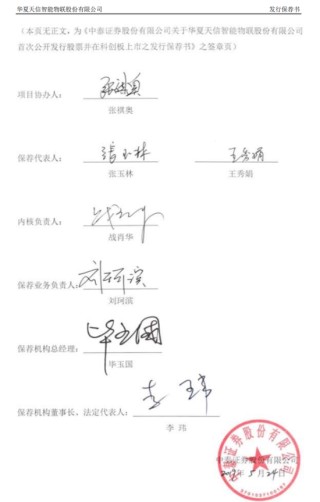 华夏天信智能物联股份有限公司 发行保荐书
(本页无正文，为《中泰证券股份有限公司关于华夏天信智能物联股份有限公司
首次公开发行股票并在科创板上市之发行保荐书》之签章页)
项目协办人： 张祺奥
张祺奥
保荐代表人： 张玉林 王秀娟
张玉林 王秀娟
内核负责人： 战肖华
战肖华
保荐业务负责人： 刘珂滨
刘珂滨
保荐机构总经理： 毕玉国
毕玉国
保荐机构董事长、法定代表人： 李玮
李 玮
中泰证券股份有限公司
年5月24日